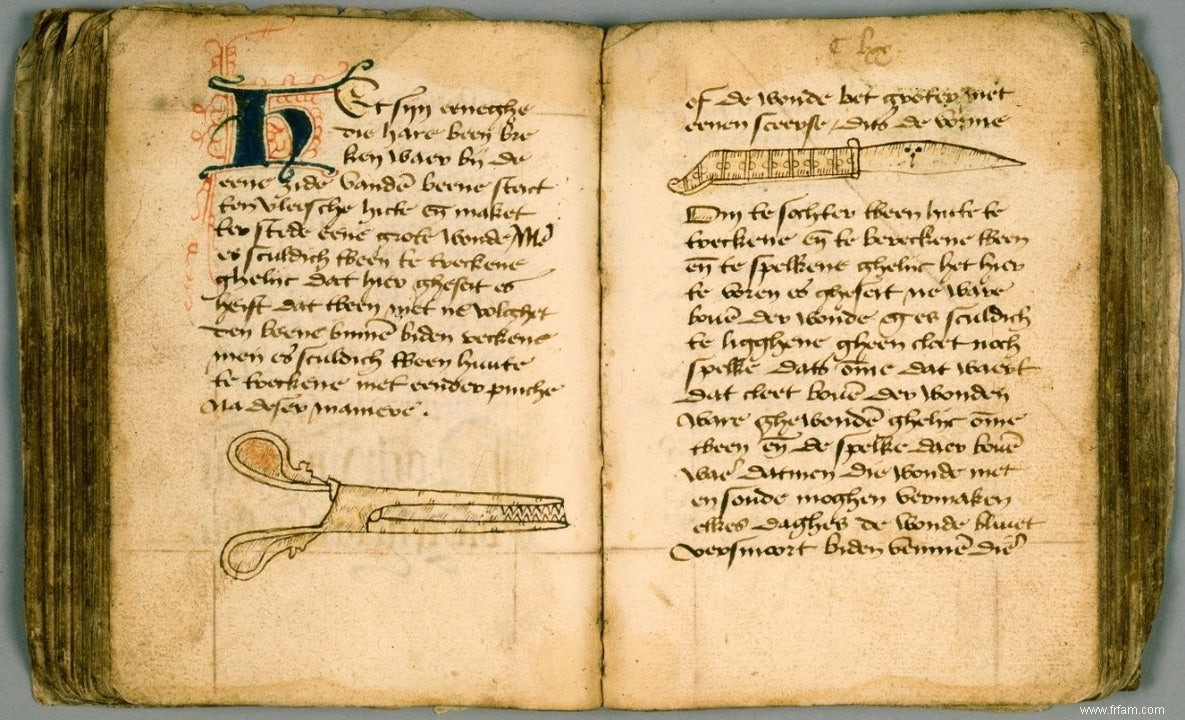 Het sijn eeneghe
die hare been bre
ken waer bij de
eene zide vanden beene stect
ten vleessche hute eñ maket
ter stede eene grote wonde Mē
es sculdich tbeen te treckene
ghelijc dat hier gheseit es
heift dat tbeen niet ne volghet
den beene binnē biden treckene
men es sculdich tbeen huute
te treckene met eender pinche
Na deser maniere .
C lxx
of de wonde bet groter met
eenen sceerse / dits de vorme
Om te sochter tbeen hute te
treckene eñ te bereckene tbeen
eñ te spelkene ghelijc het hier
te voren es gheseit ne ware
bouē der wonde es sculdich
te ligghene gheen cleet noch
spelke dats ōme dat waert
dat cleet bouē der wonden
ware ghewondē ghelijc ōme
tbeen eñ de spelke daer bouē
waē datmen die wonde niet
en soude moghen vermaken
elkes daghes de wonde
versmoort biden
www.frfam.com